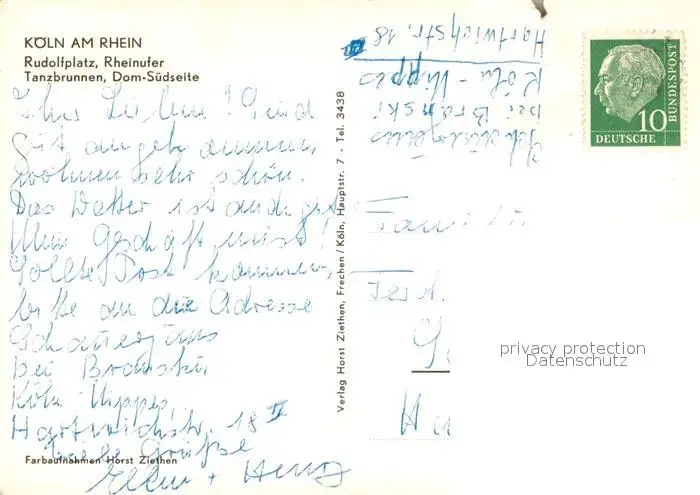 KÖLN AM RHEIN
Rudolfplatz, Rheinufer
Tanzbrunnen, Dom-Südseite
Ihr Lieben! Sind
gut angekommen,
wohnen sehr schön.
Das Wetter ist auch gut
Sollte Post kommen,
bitte an die Adresse
bei Bronski,
Köln Nippes,
Hartwichstr. 18 II
Viele Grüße
Farbaufnahmen Horst Ziethen
Verlag Horst Ziethen, Frechen/Köln, Hauptstr. 7 - Tel. 3438
bei Bronski
Köln-Nippes
Hartwichstr. 18
10
DEUTSCHE
BUNDESPOST
privacy protection
Datenschutz